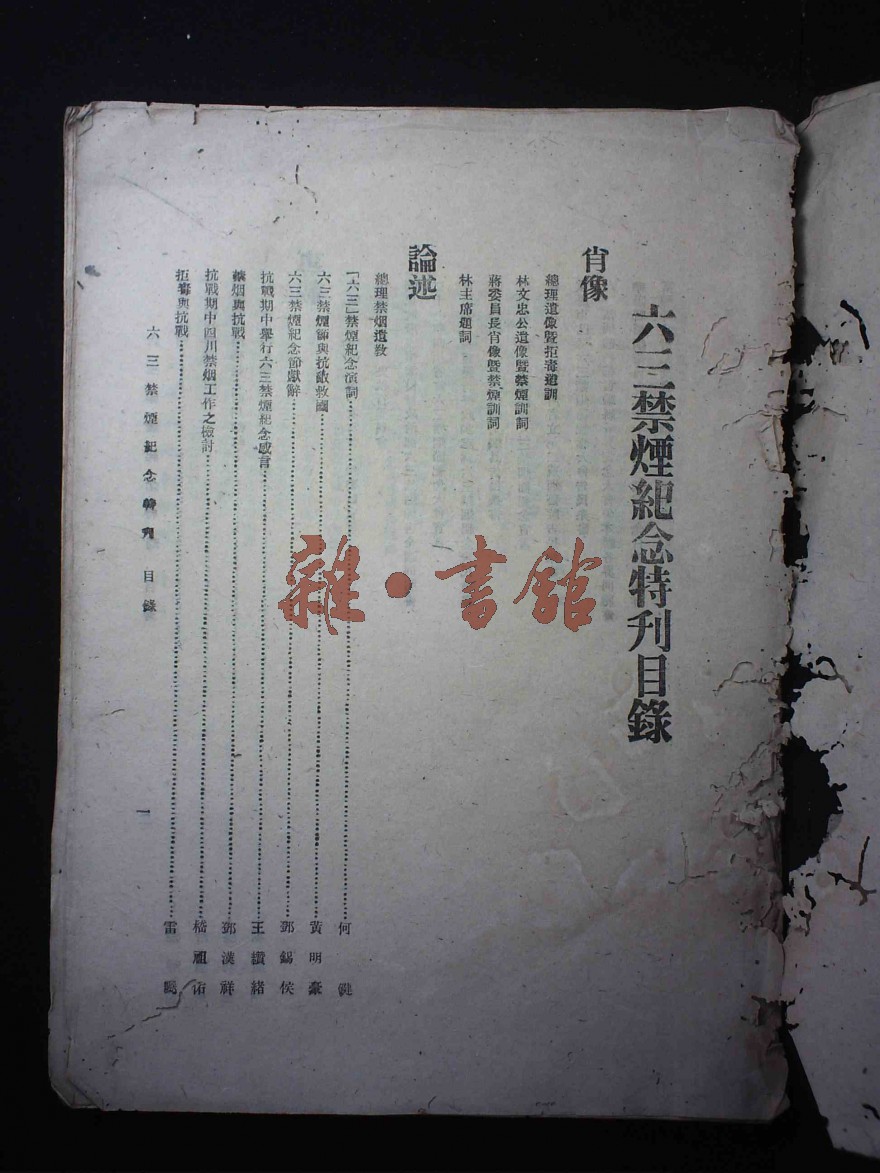 六三禁煙紀念特刊目錄
肖像
總理遺像暨拒毒遺訓
林文忠公遺像暨禁煙訓詞
蔣委員長肖像暨禁煙訓詞
林主席題詞
論述
總理禁烟遺教
「六三」禁煙紀念演詞 何健
六三禁煙節與抗敵救國 黃明豪
六三禁煙紀念節獻辭 鄧錫侯
抗戰期中舉行六三禁煙紀念感言 王纘緒
禁烟與抗戰 鄧漢祥
抗戰期中四川禁烟工作之檢討 嵇祖佑
拒毒與抗戰 雷
六三禁煙紀念特刊 目錄
一
雜·書館